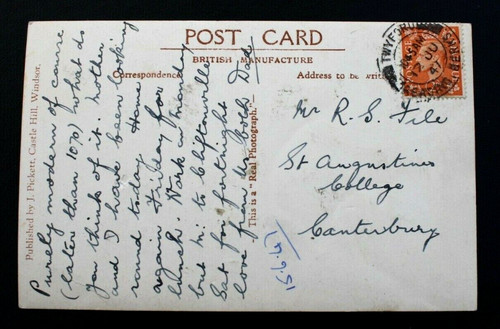 POST CARD
BRITISH MANUFACTURE
Correspondence
Address to be writ
Published by J. Pickett, Castle Hill, Windsor.
This is a "Real Photograph."
Purely modern of cause
(later than 1070) what do
you think of it. Mother
and I have been looking
round today. Home
again Friday for
Wash. Park & Friendly
but m: to Cliftonville
Sat for fortnight
love from us both Dad
Mr R. S. File
St Augustines
College
Canterbury
15.6.51
TWYFORD
BERKS